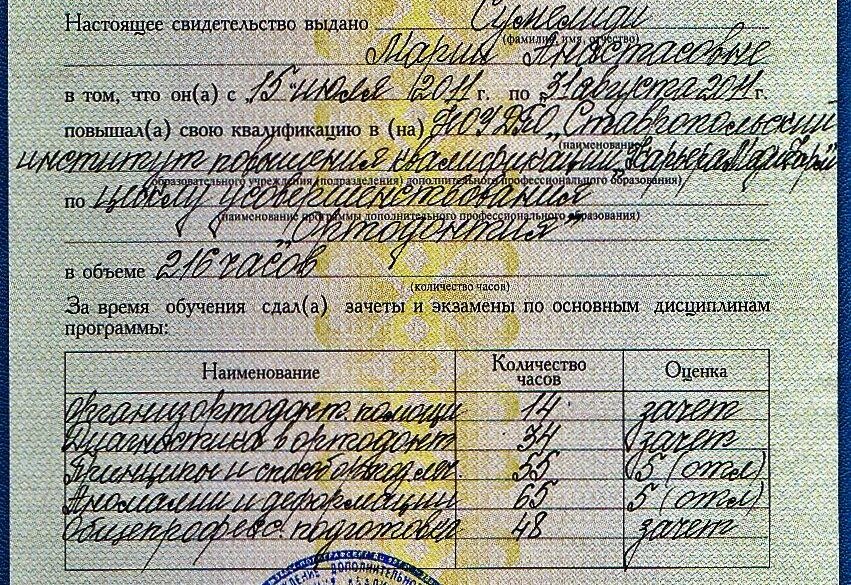 Настоящее свидетельство выдано
(фамилия, имя, отчество)
Марии Анастасовне
в том, что он(а) с „15" июля 2011 г. по „31 августа 2011 г.
повышал(а) свою квалификацию в (на) НОУ ДПО „Ставропольский
(наименование
институт повышения квалификации
образовательного учреждения (подразделения) дополнительного профессионального образования)
по циклу усовершенствования
(наименование программы дополнительного профессионального образования)
„Ортодонтия"
в объеме 216 часов
(количество часов)
За время обучения сдал(а) зачеты и экзамены по основным дисциплинам
программы:
Наименование Количество часов Оценка
Организ ортодонт. помощи 14 зачет
Диагностика в ортодонт 34 зачет
Принципы и способ 55 5 (отл)
Аномалии и деформации 65 5 (отл)
Общепрофес. подготовка 48 зачет